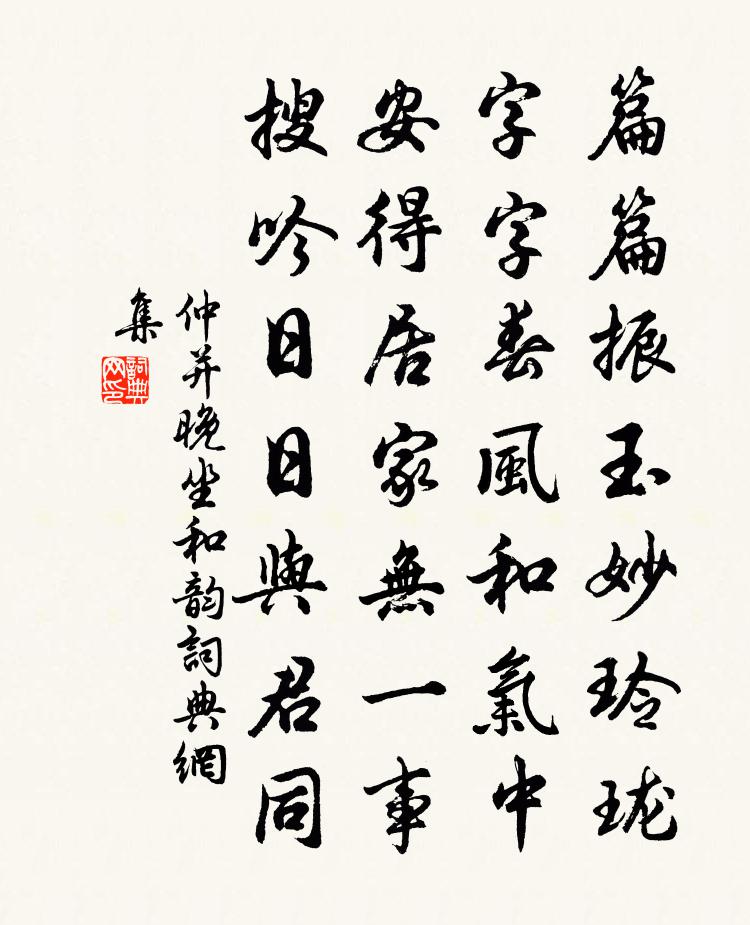 篇篇振玉妙玲珑
字字春風和氣中
安得居家無一事
搜吟日日與君同
仲并晚坐和韵詞典網
集
詞典
网印